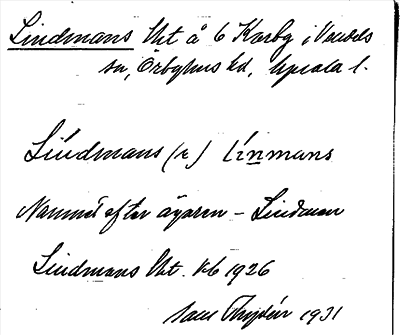 Lindmans lht å 6 Karby i Vendels
sn, Örbyhus hd, Upsala l.
Lindmans (r) línmans
Namnet efter ägaren – Lindman
Lindmans lht. kb 1926
1931